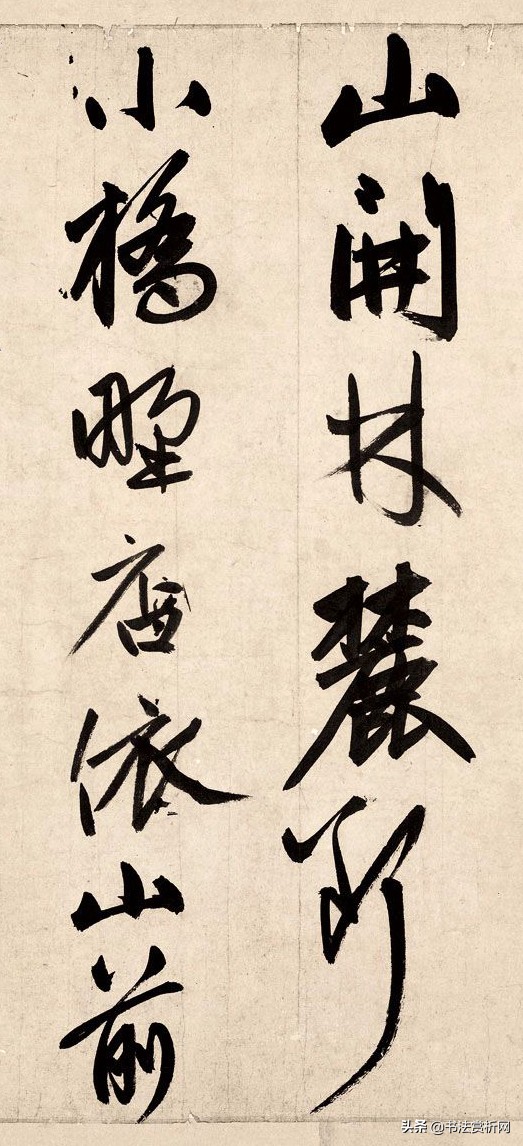 山開林麓斷
小橋野店依山前
头条 @书法赏析网